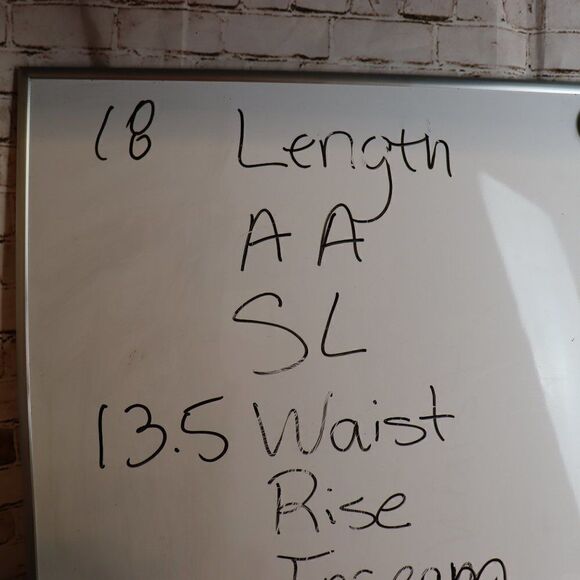 18 Length
AA
SL
13.5 Waist
Rise
Inseam